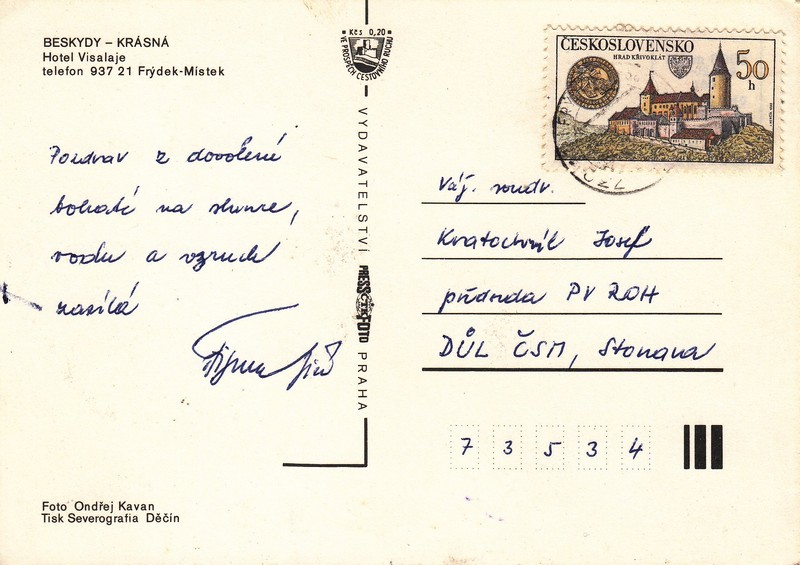 BESKYDY – KRÁSNÁ
Hotel Visalaje
telefon 937 21 Frýdek-Místek
Kčs 0,20
VE PROSPĚCH CESTOVNÍHO RUCHU
ČESKOSLOVENSKO
HRAD KŘIVOKLÁT
50
h
Pozdrav z dovolené
bohaté na slunce,
vodu a vzruch
zasílá
Jiří
VYDAVATELSTVÍ PRESSFOTO PRAHA
ČTK
Váž. soudr.
Kratochvíl Josef
předseda PV ROH
DŮL ČSM, Stonava
7 3 5 3 4
Foto Ondřej Kavan
Tisk Severografia Děčín